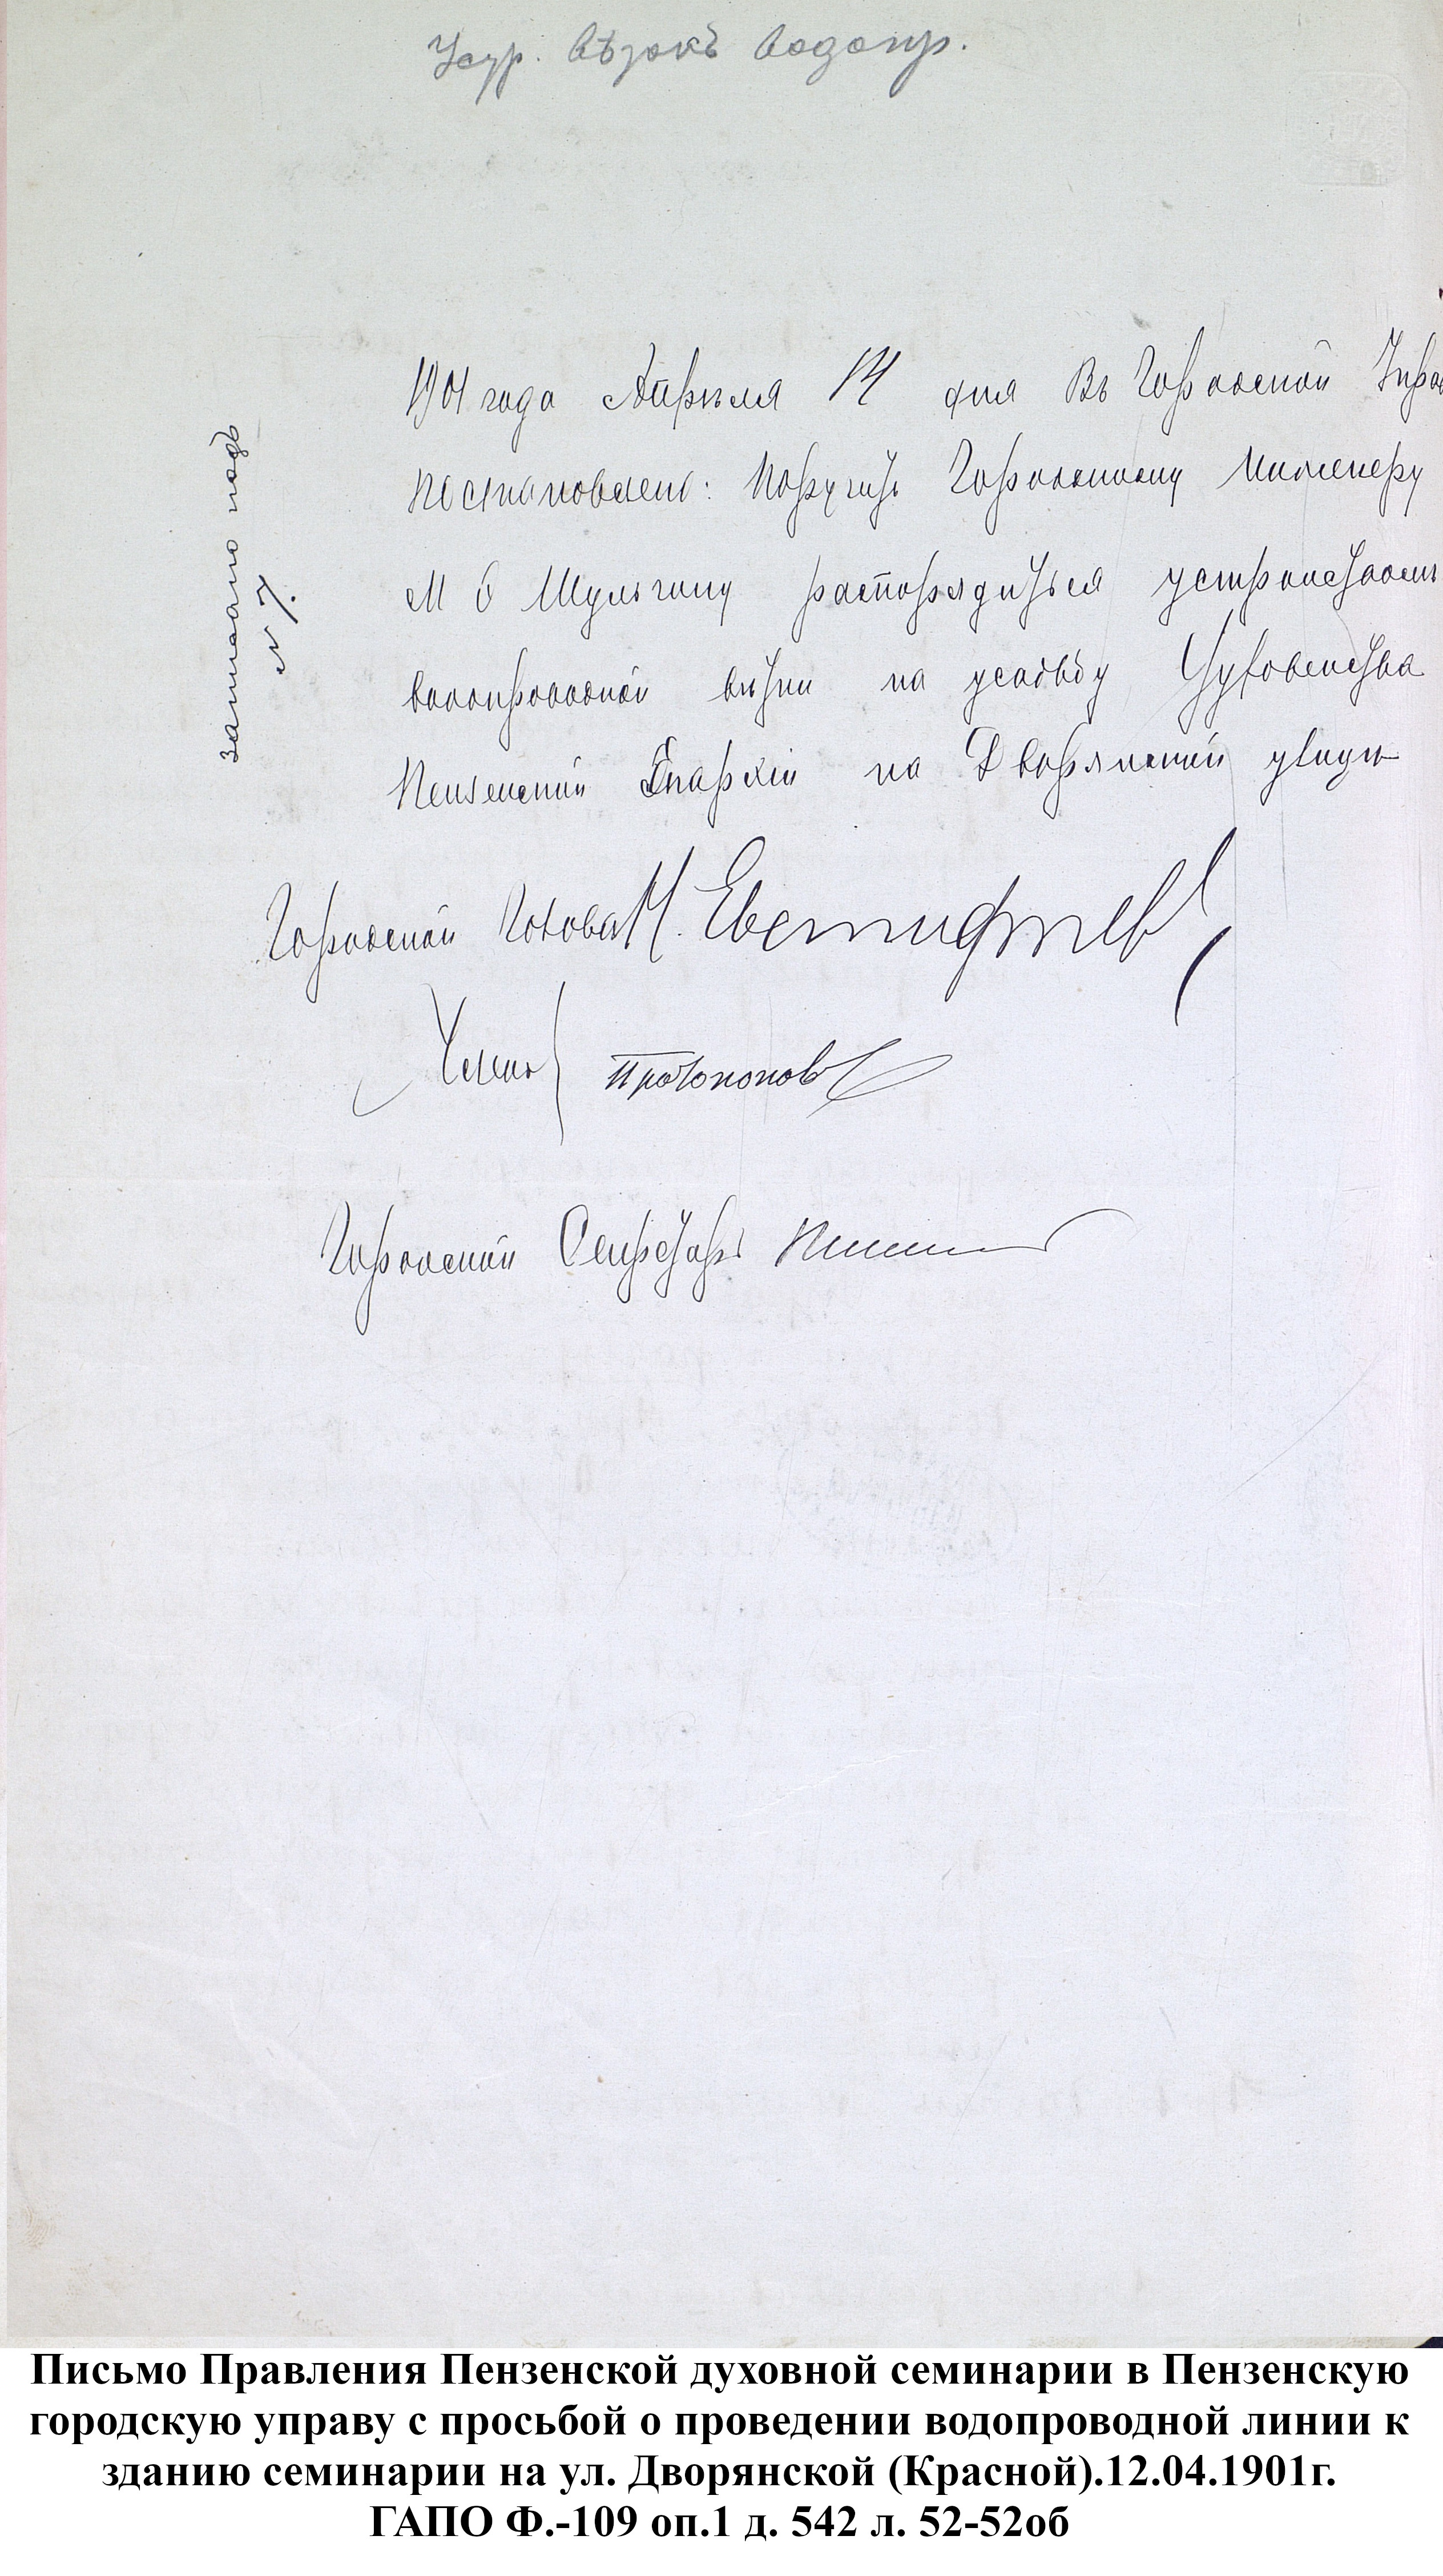 Устр. вѣтокъ водопр.
записано подъ
№ 7.
1901 года Апрѣля 14 дня Въ Городской Управ
постановлено: Поручить Городскому Инженеру
М О Шульгину распорядиться устройством
водопроводной вѣтки на усадьбу Духовенства
Пензенской Епархіи на Дворянской улицѣ
Городской Голова Н. Евстифѣев
Члены Протопопов
Городской Секретарь
Письмо Правления Пензенской духовной семинарии в Пензенскую
городскую управу с просьбой о проведении водопроводной линии к
зданию семинарии на ул. Дворянской (Красной).12.04.1901г.
ГАПО Ф.-109 оп.1 д. 542 л. 52-52об